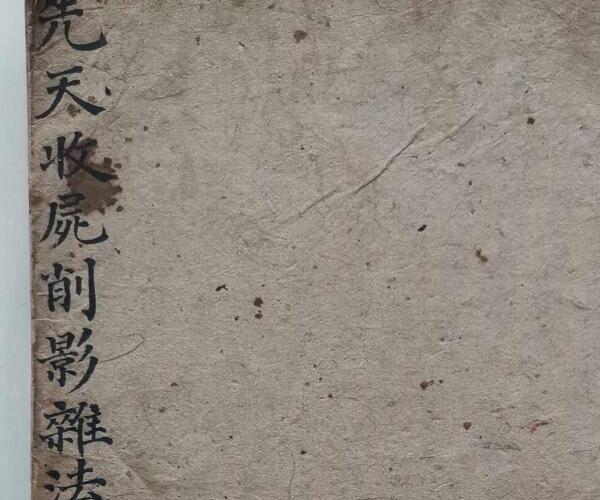 先天收屍削影雜法